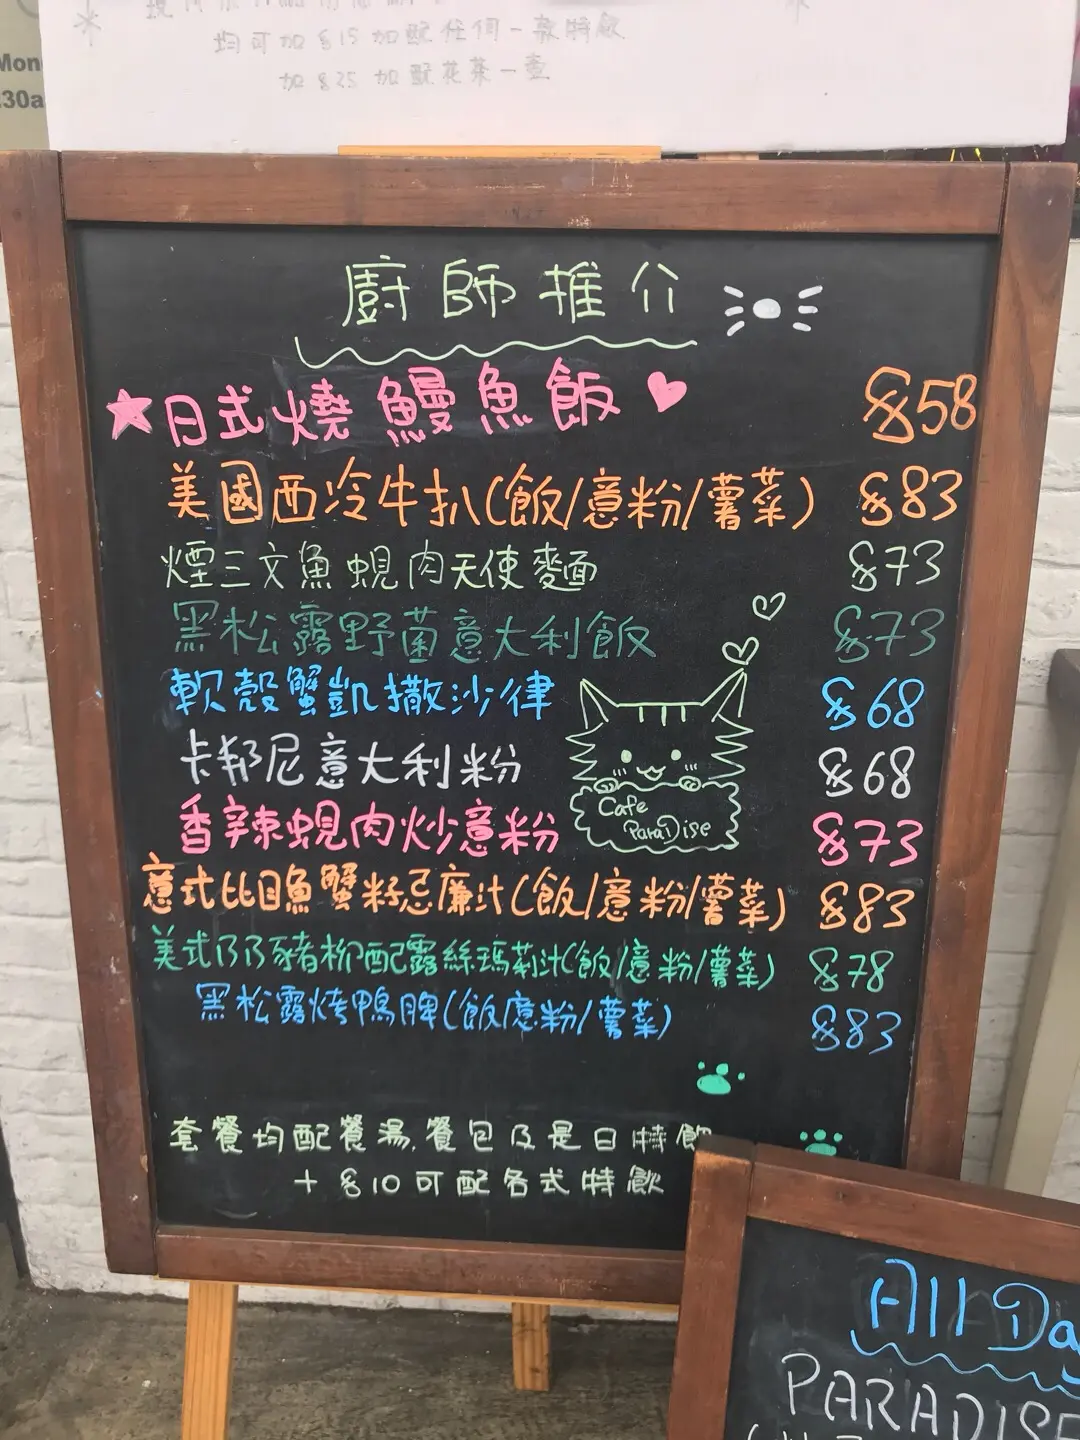 均可加$15加配任何一款特飲
加$25加配花茶一壺
Mon
30a
廚師推介
日式燒鰻魚飯 $58
美國西冷牛扒(飯/意粉/薯菜) $83
煙三文魚蜆肉天使麵 $73
黑松露野菌意大利飯 $73
軟殼蟹凱撒沙律 $68
卡邦尼意大利粉 $68
Cafe
ParaDise
香辣蜆肉炒意粉 $73
意式比目魚蟹籽忌廉汁(飯/意粉/薯菜) $83
美式BB豬柳配露絲瑪莉汁(飯/意粉/薯菜) $78
黑松露烤鴨脾(飯/意粉/薯菜) $83
套餐均配餐湯,餐包及是日特飲
+$10可配各式特飲
All Da
PARADISE